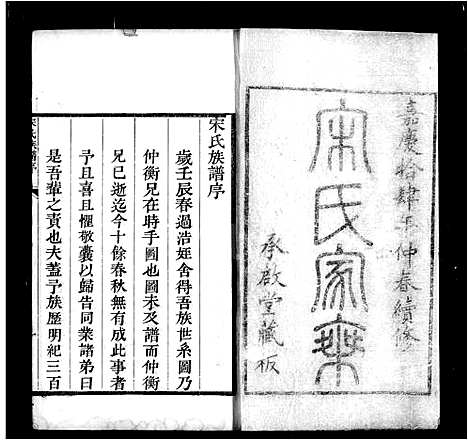 嘉慶拾肆年仲春續修
宋氏家乘
承啟堂藏板
宋氏族譜序
歲壬辰春過浩姪舍得吾族世系圖乃
仲衡兄在時手圖也圖未及譜而仲衡
兄已逝迄今十余春秋無有成此事者
予且喜且懼敬囊以歸告同業諸弟曰
是吾輩之責也夫蓋予族歷明紀三百
宋氏族譜序